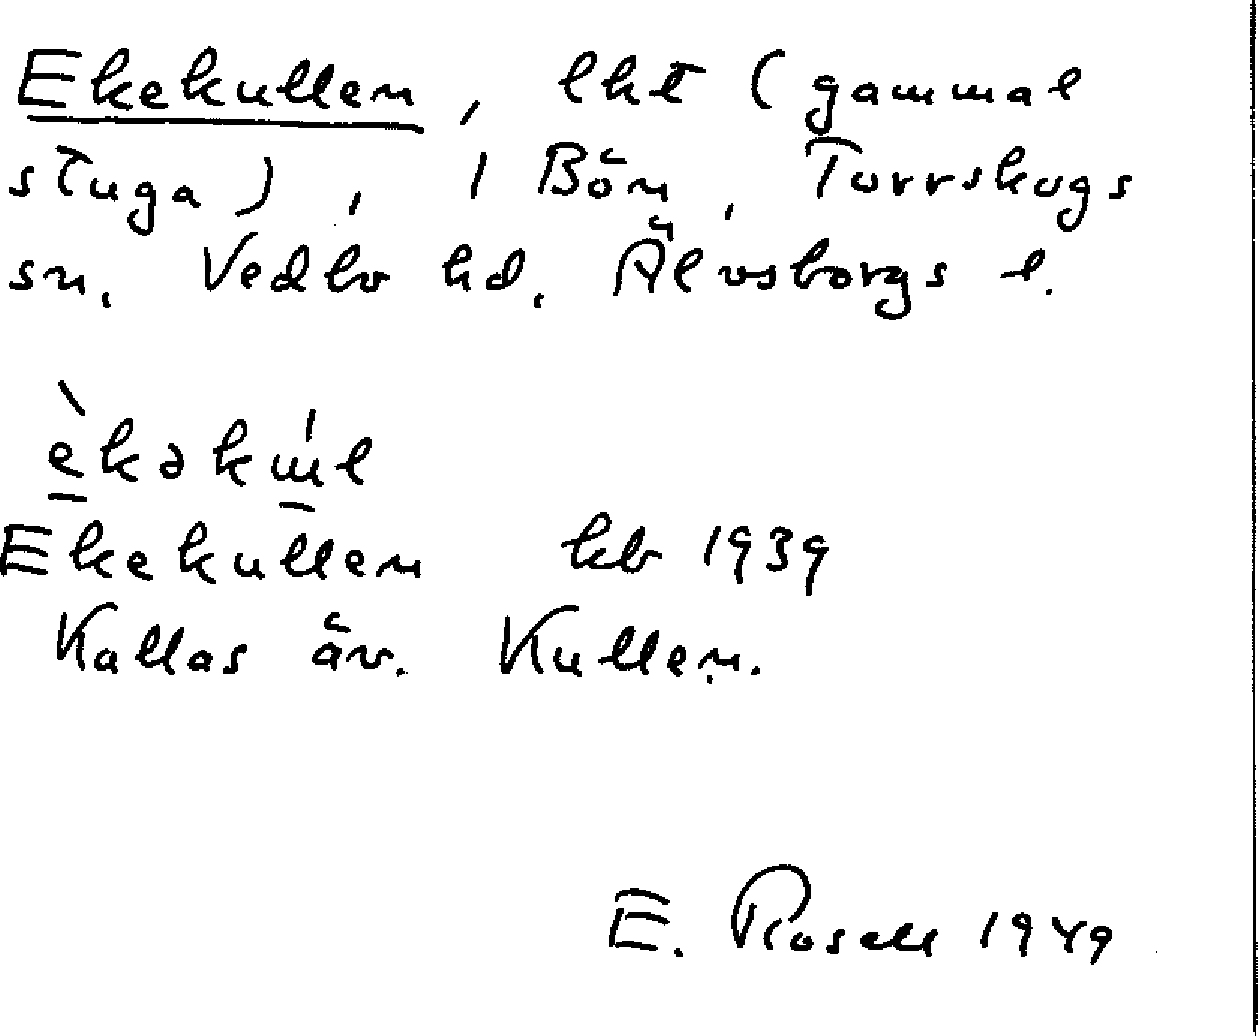 Ekekullen, lht (gammal
stuga), i Bön, Torrskogs
sn. Vedbo hd. Älvsborgs l.
Ekekullen kb 1939
Kallas äv. Kullen.
E. Rosell 1949